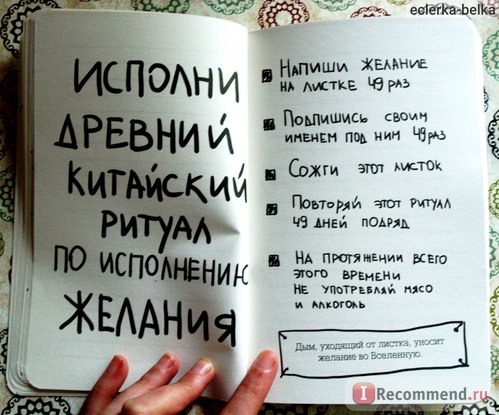 eclerka-belka
ИСПОЛНИ
ДРЕВНИЙ
КИТАЙСКИЙ
РИТУАЛ
ПО ИСПОЛНЕНИЮ
ЖЕЛАНИЯ
НАПИШИ ЖЕЛАНИЕ
НА ЛИСТКЕ 49 РАЗ
ПОДПИШИСЬ СВОИМ
ИМЕНЕМ ПОД НИМ 49 РАЗ
СОЖГИ ЭТОТ ЛИСТОК
ПОВТОРЯЙ ЭТОТ РИТУАЛ
49 ДНЕЙ ПОДРЯД
НА ПРОТЯЖЕНИИ ВСЕГО
ЭТОГО ВРЕМЕНИ
НЕ УПОТРЕБЛЯЙ МЯСО
И АЛКОГОЛЬ
Дым, уходящий от листка, уносит
желание во Вселенную.
I Recommend.ru